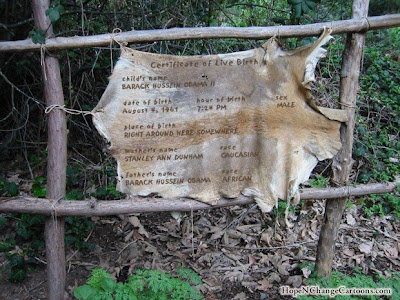 Certificate of Live Birth
child's name
BARACK HUSSEIN OBAMA II
date of birth hour of birth sex
August 4, 1961 7:24 PM MALE
place of birth
RIGHT AROUND HERE SOMEWHERE
mother's name race
STANLEY ANN DUNHAM CAUCASIAN
father's name race
BARACK HUSSEIN OBAMA AFRICAN
HopeNChangeCartoons
.blogspot.com